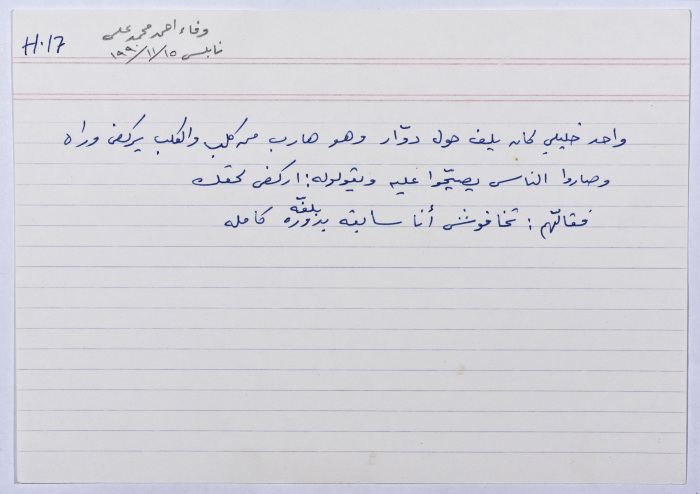 H.17
وفاء احمد محمد علي
نابلس ١٩٩٠/١١/١٥
واحد خليلي كان يلف حول دوّار وهو هارب من كلب والكلب يركض وراه
وصاروا الناس يصيّحوا عليه ويقولوله: اركض لحقك
بلفّه
فقالّهم: تخافوش أنا سابقه بدورة كامله